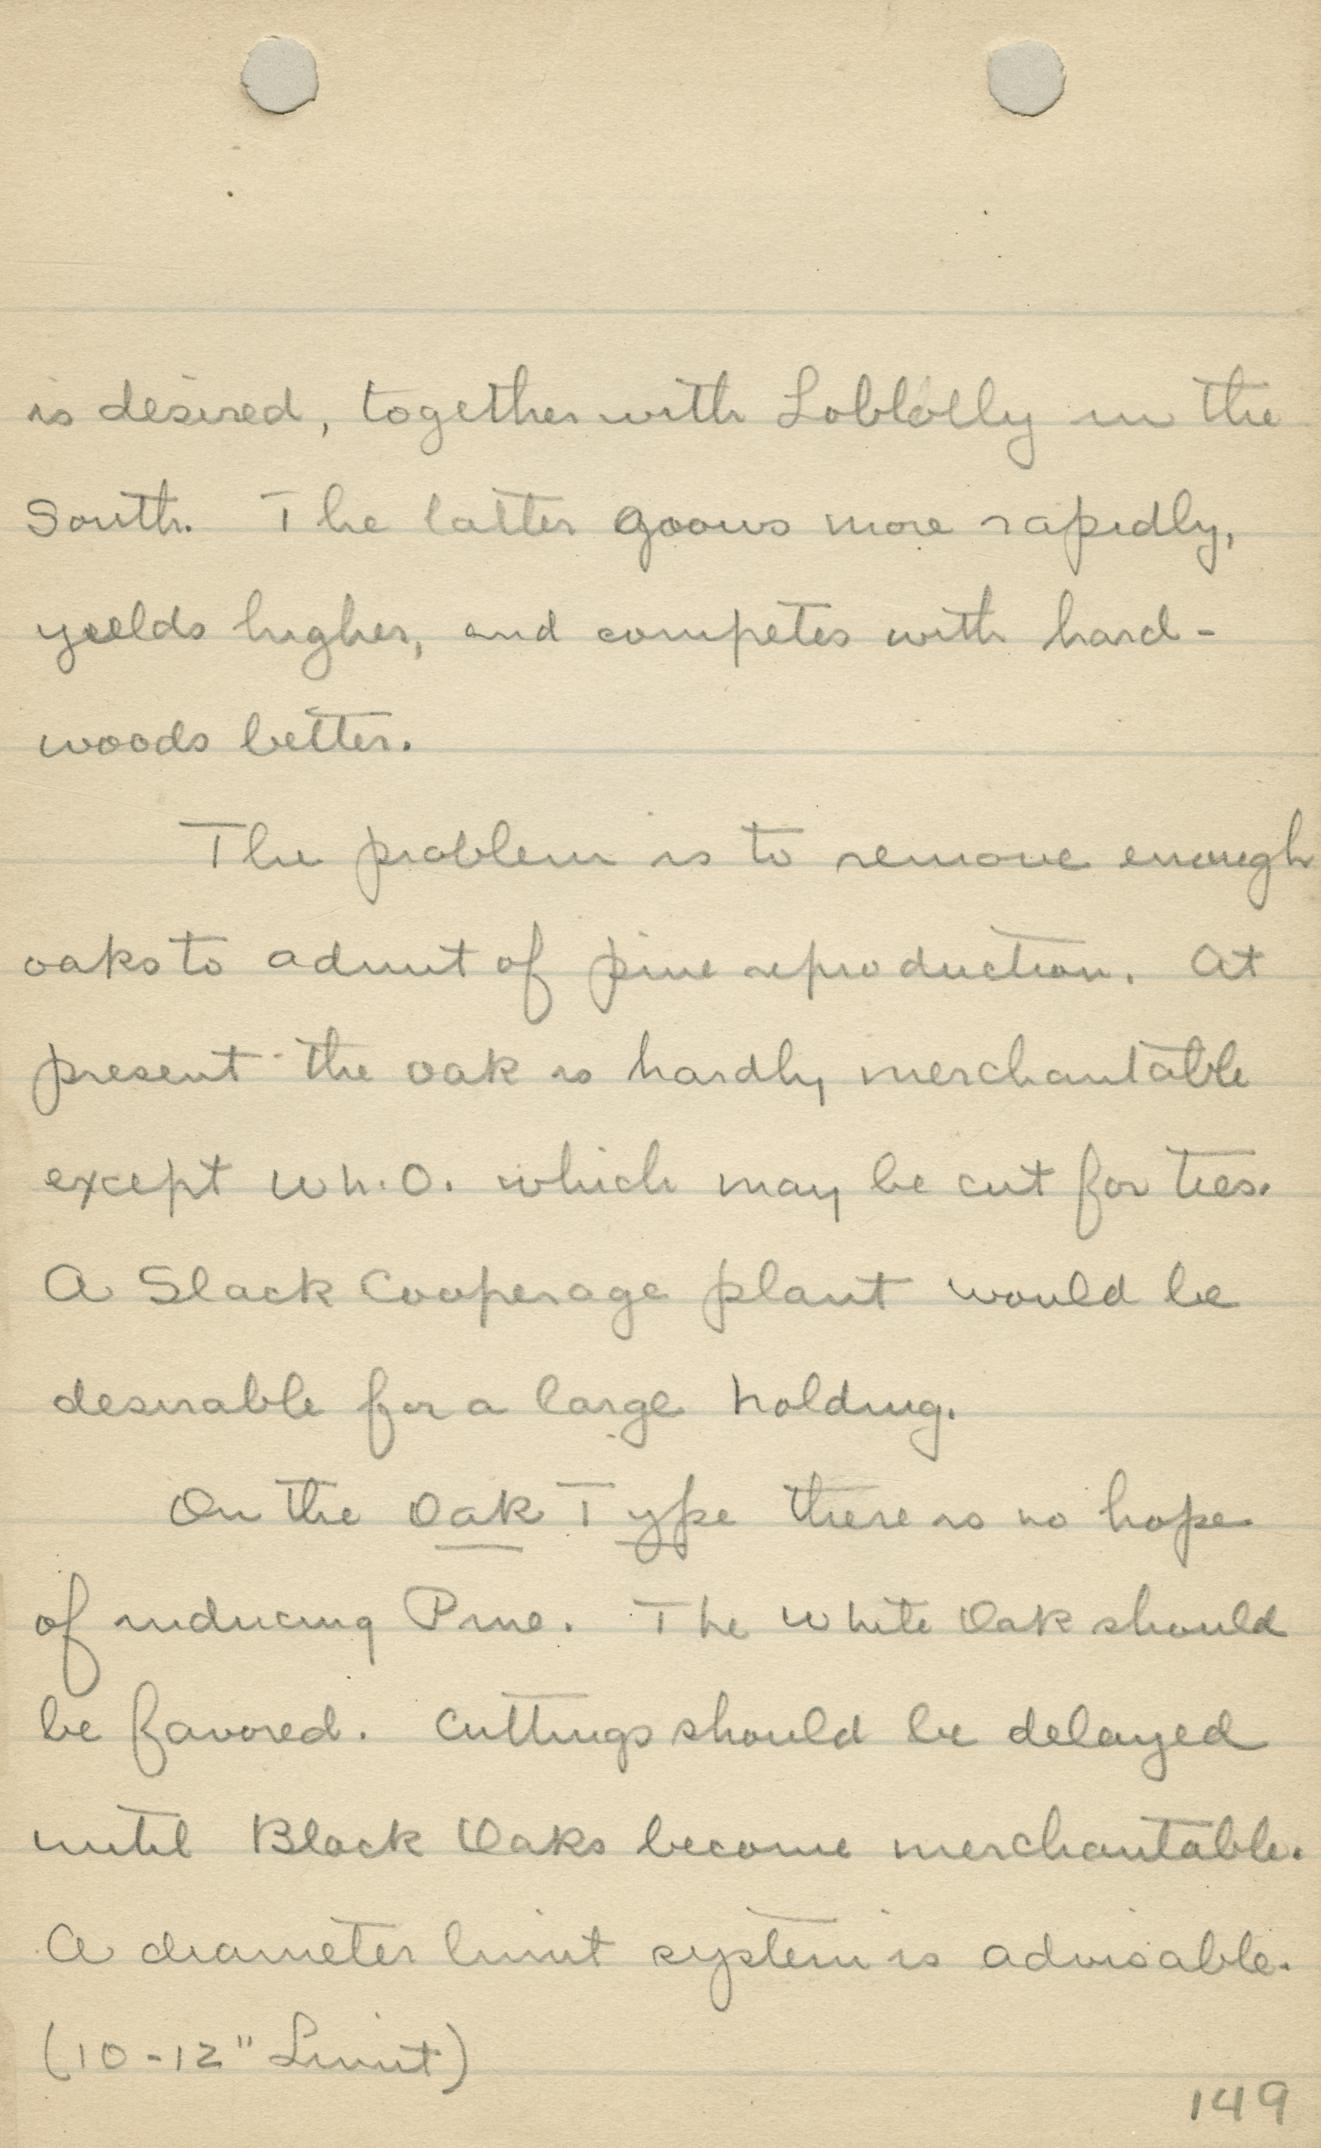 is desired, together with Loblolly in the
South. The latter grows more rapidly,
yields higher, and competes with hard-
woods better.
The problem is to remove enough
oaks to admit of pine reproduction. At
present the oak is hardly merchantable
except Wh.O. which may be cut for ties.
A Slack Cooperage plant would be
desirable for a large holding.
On the Oak Type there is no hope
of inducing Pine. The White Oak should
be favored. Cuttings should be delayed
until Black Oaks become merchantable.
A diameter limit system is advisable.
(10-12" Limit)
149